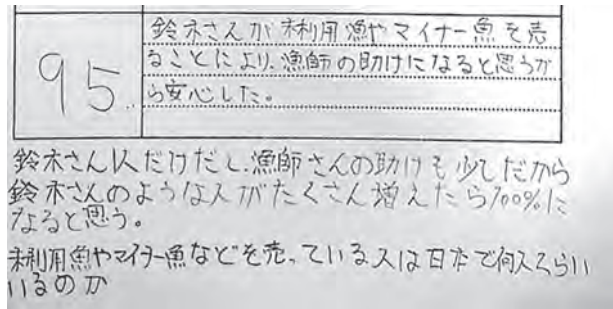 95
鈴木さんが未利用漁やマイナー魚を売
ることにより、漁師の助けになると思うか
ら安心した。
鈴木さん1人だけだし、漁師さんの助けも少しだから
鈴木さんのような人がたくさん増えたら100%に
なると思う。
未利用魚やマイナー魚などを売っている人は日本で何人くらい
いるのか